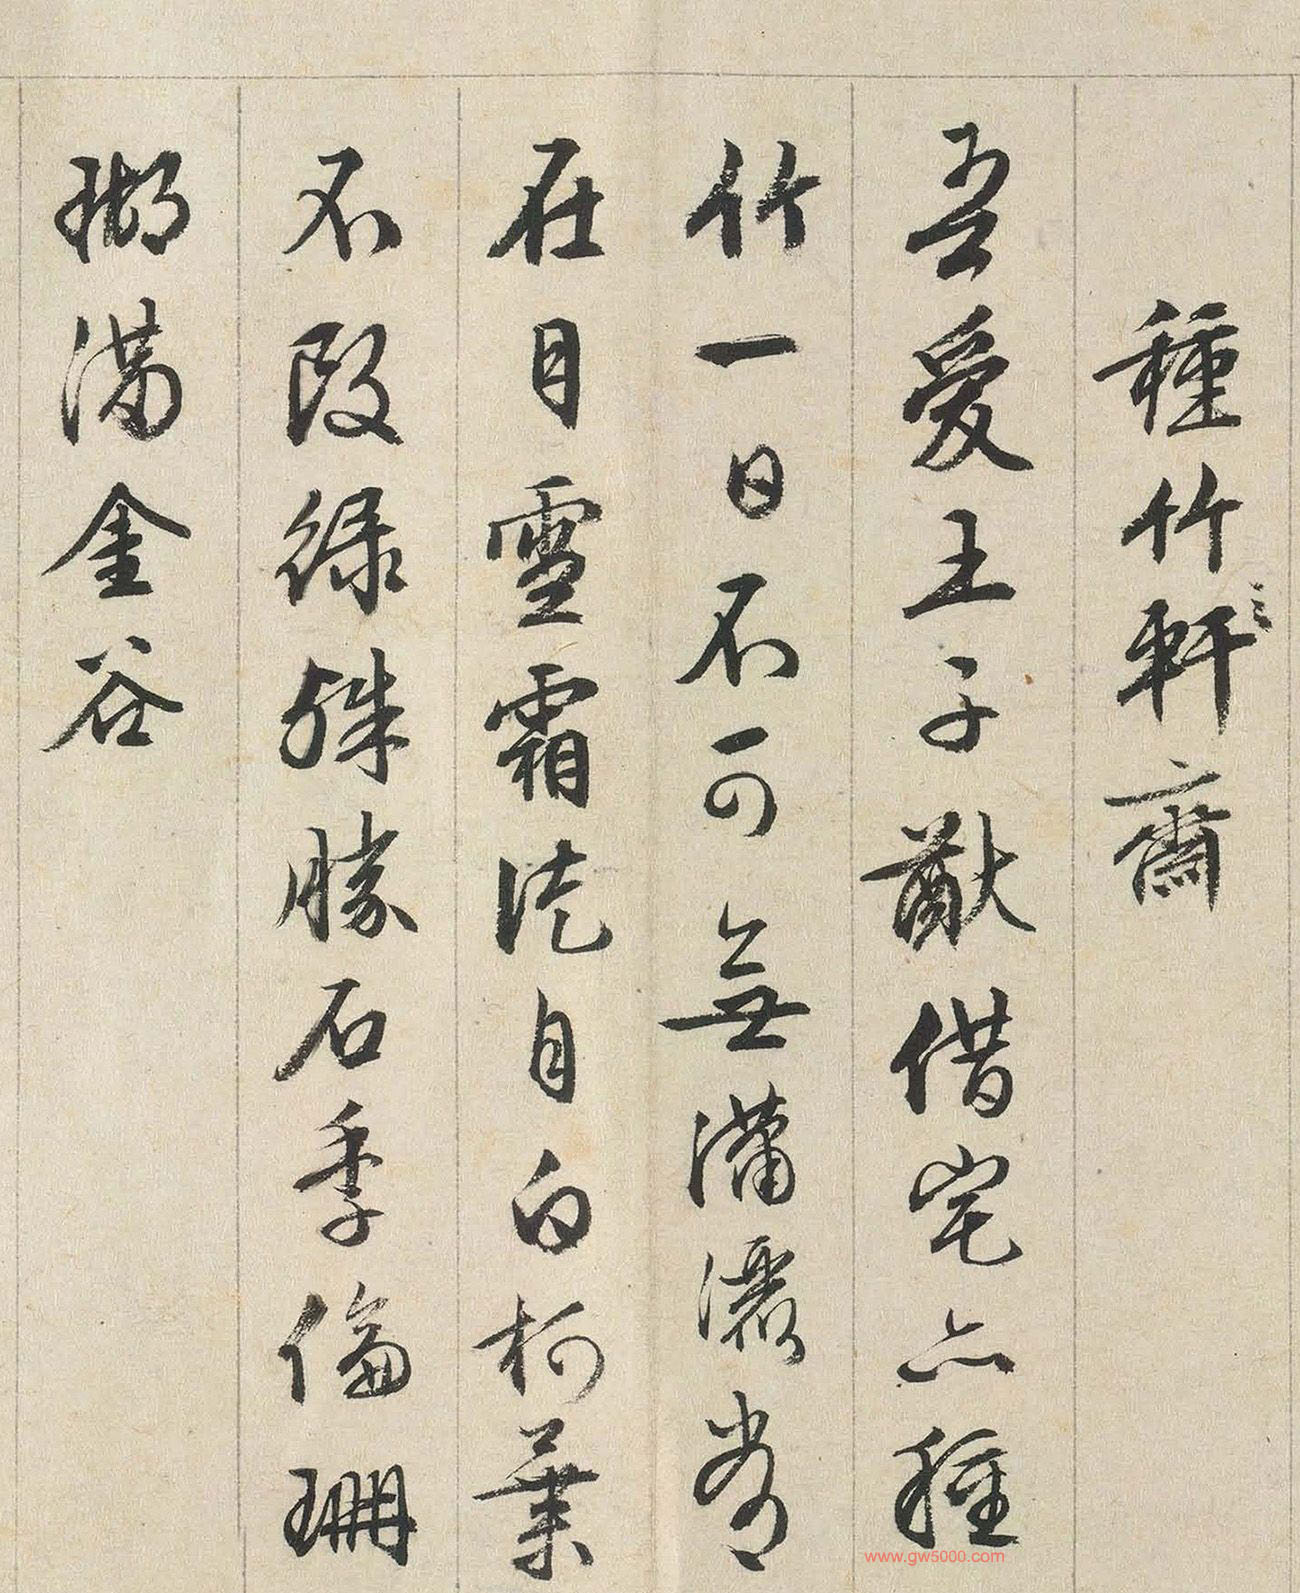 種竹軒齋
吾愛王子猷借宅亦種
竹一日不可無瀟灑常
在目雪霜徒自白柯葉
不改綠殊勝石季倫珊
瑚滿金谷
www.gw5000.com